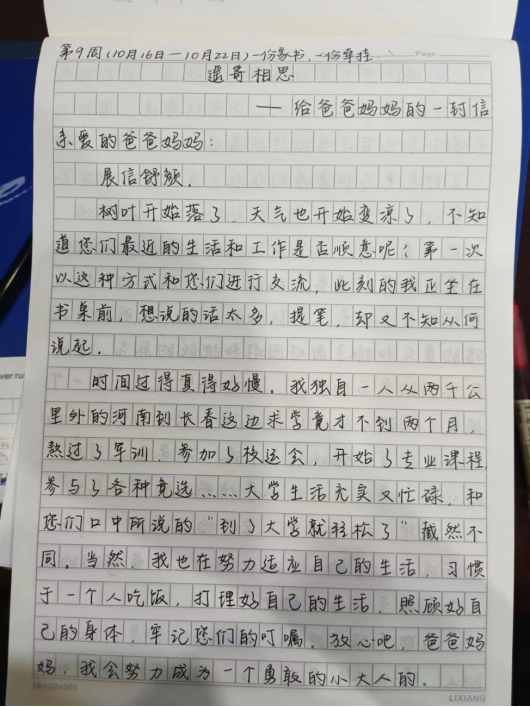 第9周(10月16日—10月22日)一份家书,一份牵挂.
Page:
遥寄相思
——给爸爸妈妈的一封信
亲爱的爸爸妈妈:
展信舒颜.
树叶开始落了.天气也开始变凉了,不知
道您们最近的生活和工作是否顺意呢?第一次
以这种方式和您们进行交流,此刻的我正坐在
书桌前,想说的话太多,提笔,却又不知从何
说起.
时间过得真得好慢.我独自一人从两千公
里外的河南到长春这边求学竟才不到两个月,
熬过了军训.参加了校运会,开始了专业课程,
参与了各种竞选……大学生活充实又忙碌,和
您们口中所说的"到了大学就轻松了"截然不
同.当然,我也在努力适应自己的生活,习惯
于一个人吃饭,打理好自己的生活,照顾好自
己的身体,牢记您们的叮嘱.放心吧,爸爸妈
妈,我会努力成为一个勇敢的小大人的.
LIXIANG